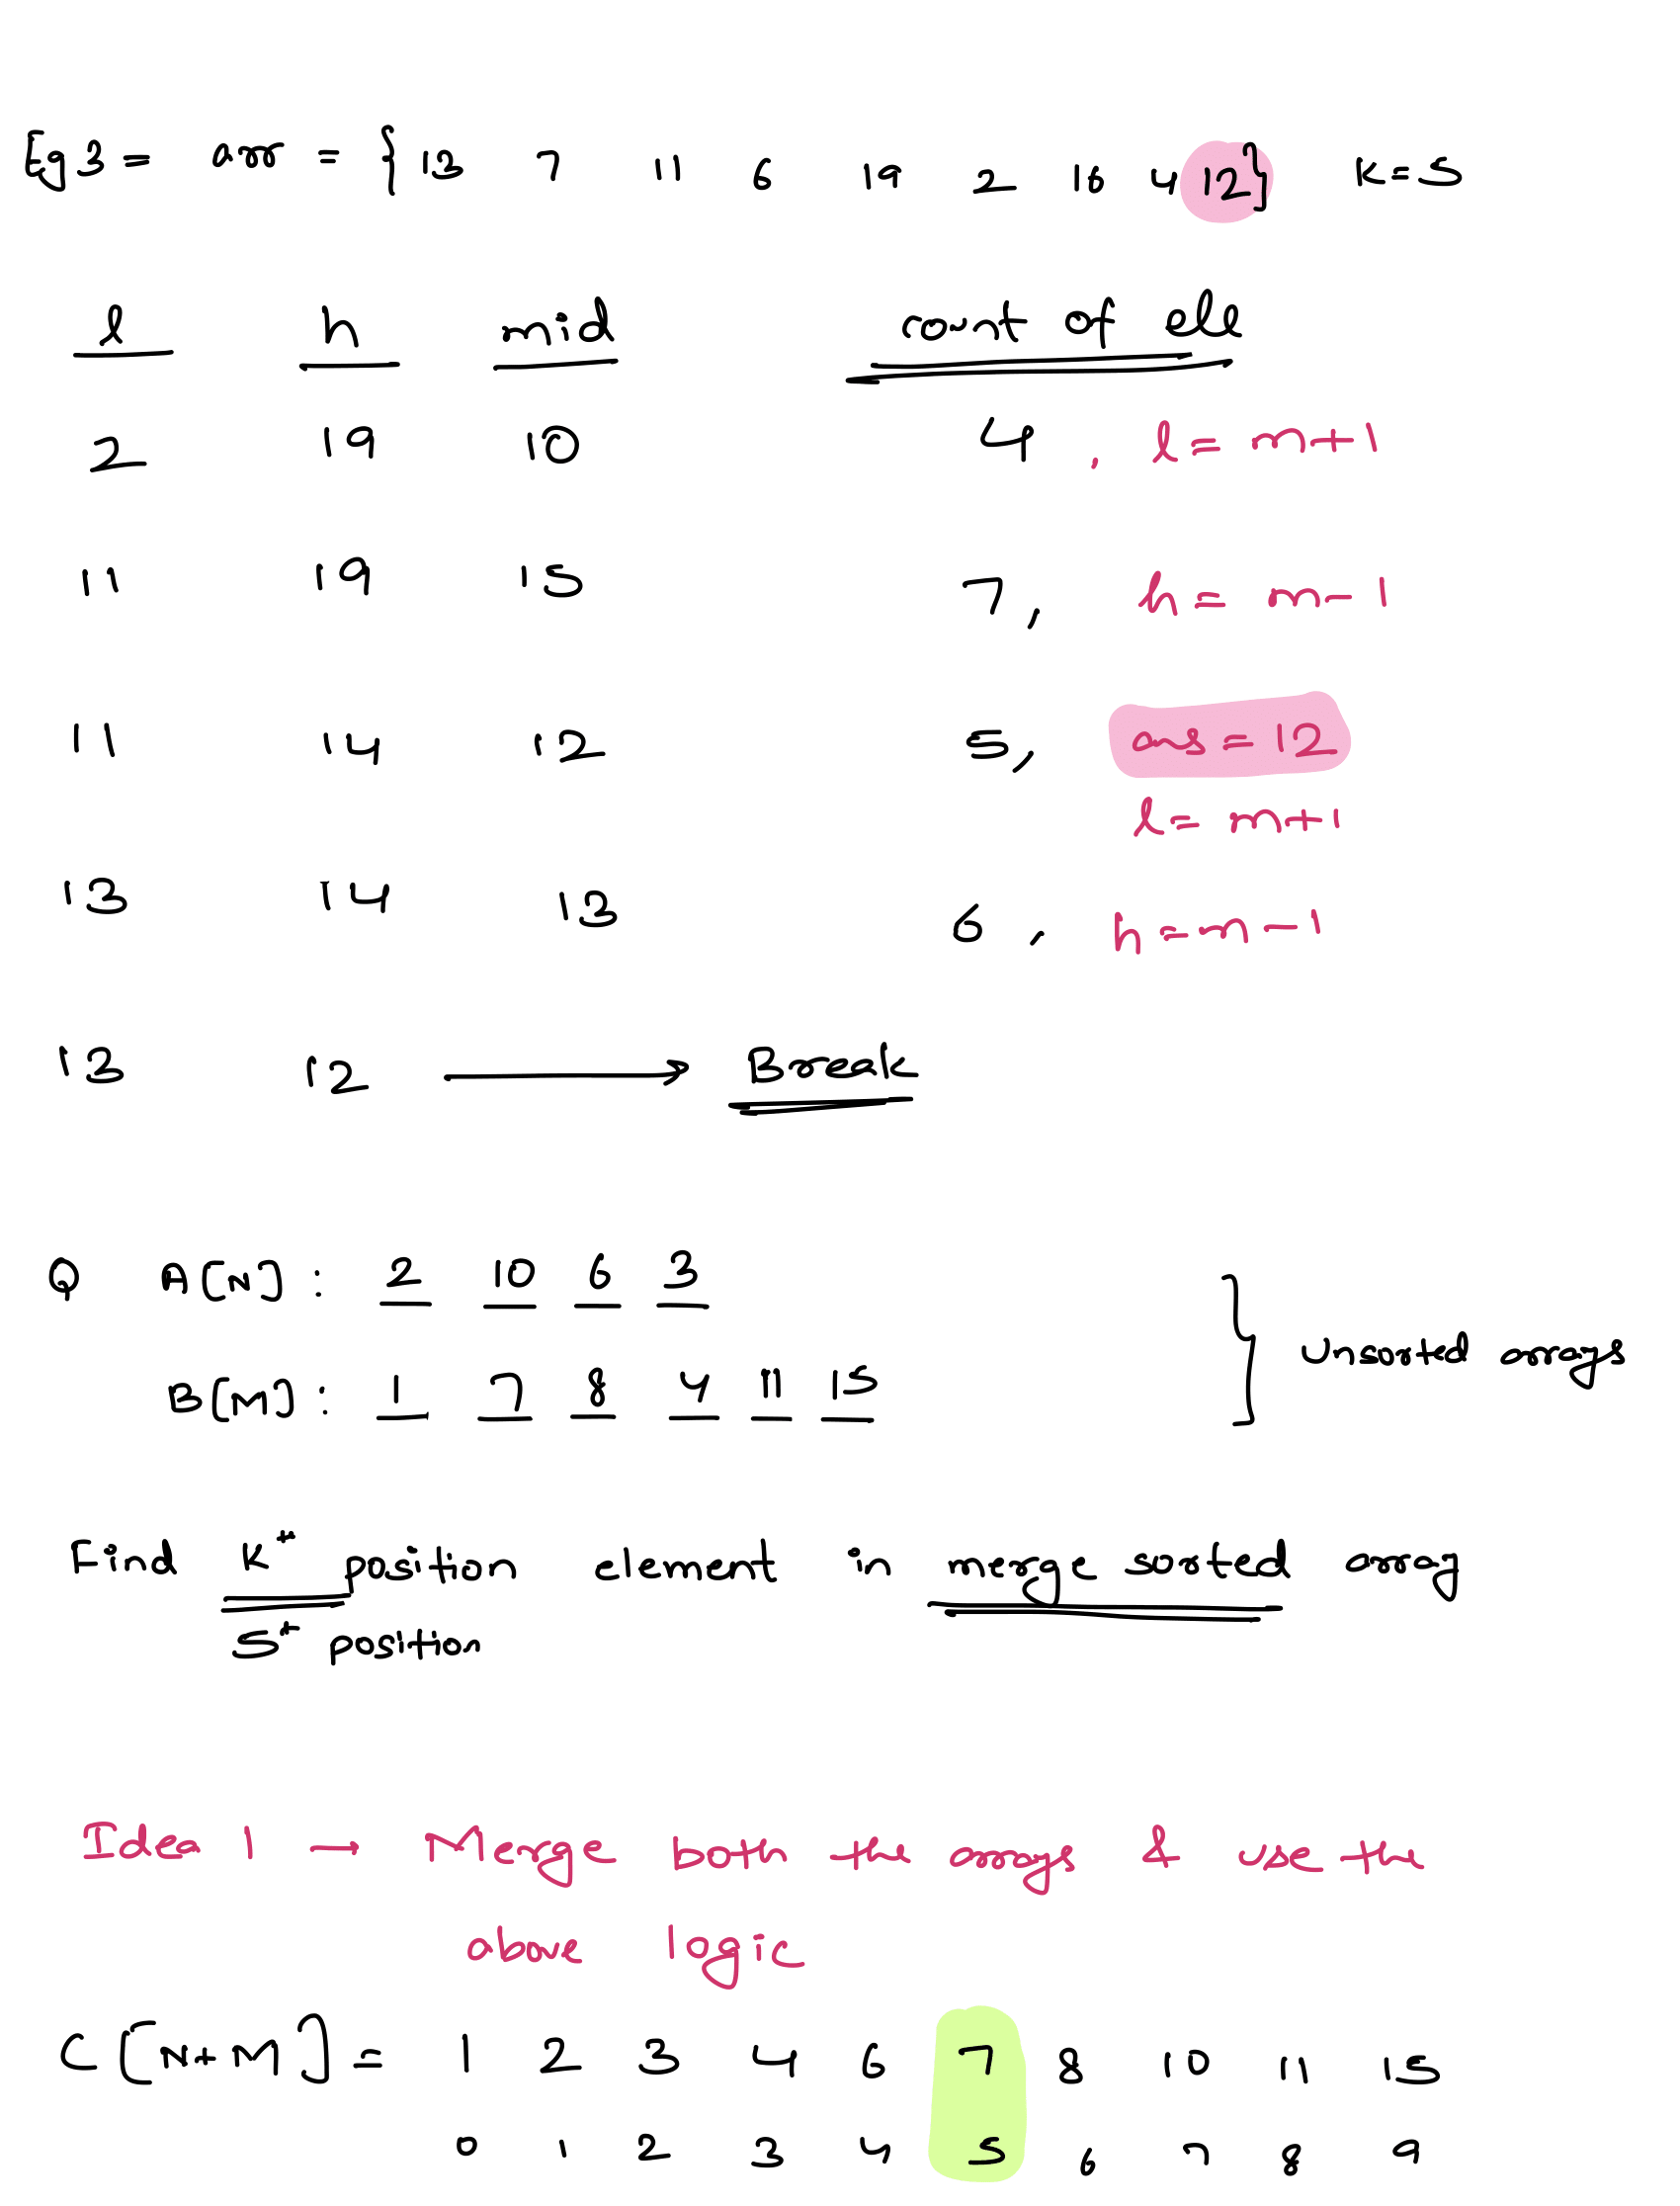 Eg 3 = arr = { 13 7 11 6 19 2 16 4 12 } K=5
l h mid count of ele
2 19 10 4 , l = m+1
11 19 15 7, h = m-1
11 14 12 5, ans = 12
l = m+1
13 14 13 6 , h = m-1
13 12 → Break
Q A[N] : 2 10 6 3
B[M] : 1 7 8 4 11 15
Unsorted arrays
Find Kᵗ position element in merge sorted array
5ᵗ position
Idea 1 → Merge both the arrays & use the
above logic
C[N+M] = 1 2 3 4 6 7 8 10 11 15
0 1 2 3 4 5 6 7 8 9